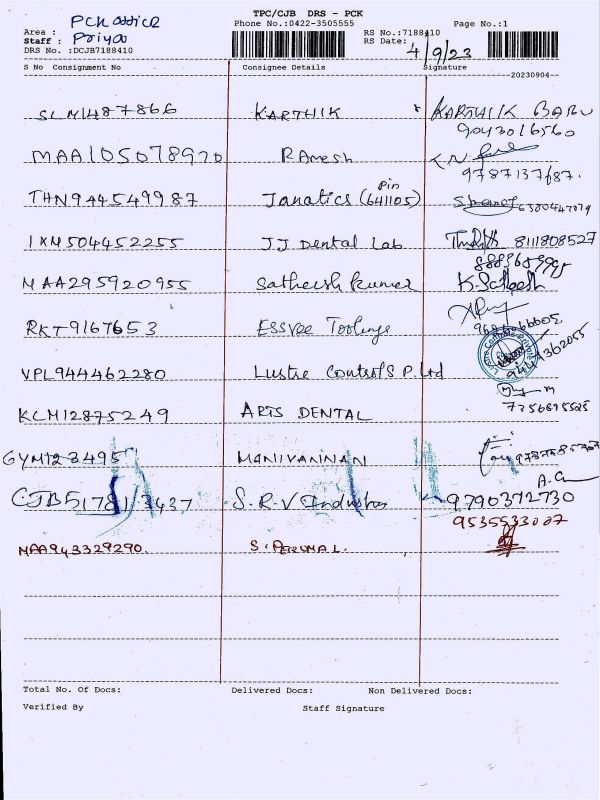 TPC/CJB DRS - PCK
Phone No.:0422-3505555
Page No.:1
Area : PCK office
Staff : Priya
DRS No. :DCJB7188410
RS No.:7188410
RS Date: 4/9/23
S No Consignment No Consignee Details Signature
20230904
SLM1487866 KARTHIK KARTHIK BABU
9043016560
MAA105078920 RAmesh K.N
9787137687.
THN944549987 Janatics (Pin 641105) 6380447079
IXM504452255 JJ Dental Lab 8111808527
8883659995
MAA295920955 Satheesh kumar K. Sathesh
RKT9167653 ESSVEE Toolings
VPL944462280 Lustre Controls P. Ltd 9449362055
KCM12875249 ARTS DENTAL 7356895525
GYM123495 MANIVANNAN
CJB5178 3437 S.R.V Industries 9790372730
9535533007
MAA943329290. S. PERUMAL.
Total No. Of Docs: Delivered Docs: Non Delivered Docs:
Verified By Staff Signature